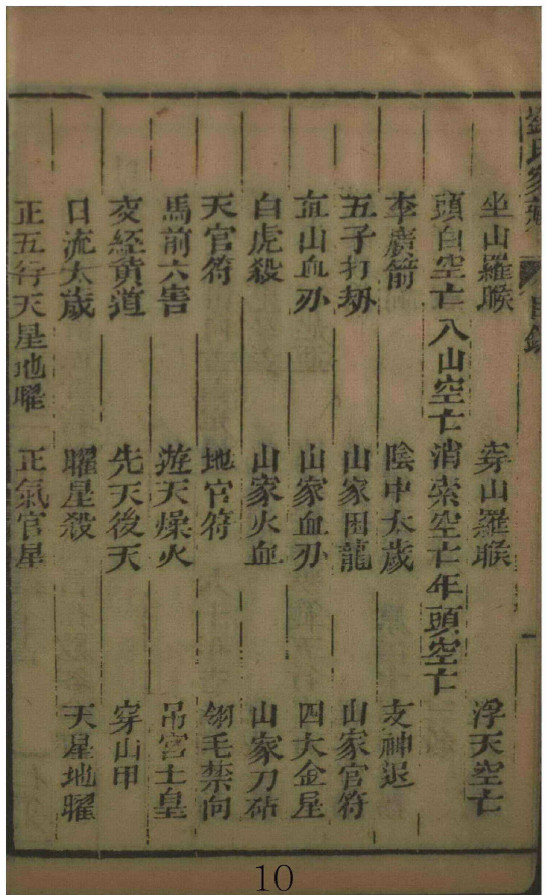 坐山羅睺 穿山羅睺 浮天空亡
頭白空亡 八山空亡 消索空亡 年頭空亡
李廣箭 陰中太歲 支神退
五子打劫 山家困龍 山家官符
直山血刃 山家血刃 四大金星
白虎殺 山家火血 山家刀砧
天官符 地官符 翎毛禁向
馬前六害 遊天燥火 吊宮土皇
夜經黃道 先天後天 穿山甲
日流太歲 曜星殺 天星地曜
正五行天星地曜 正氣官星
10